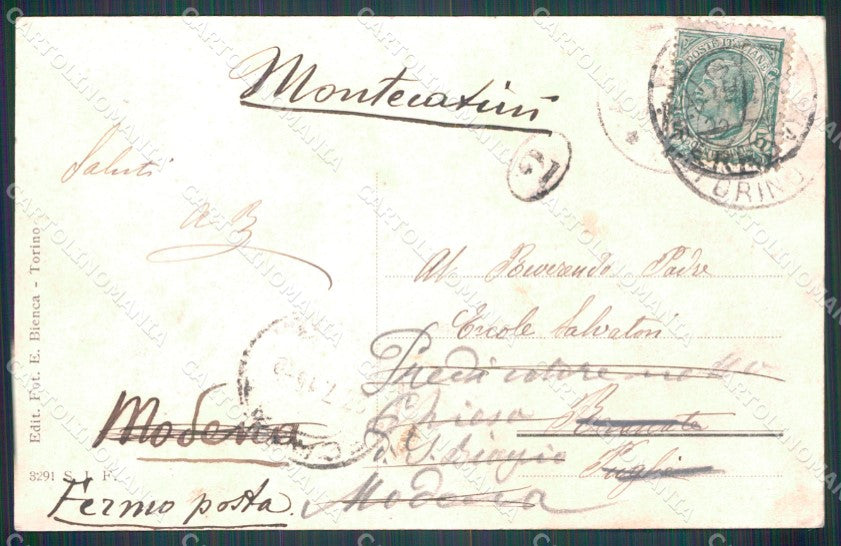 Montecatini
POSTE ITALIANE
TORINO
21
Saluti
A B
Al Reverendo Padre
Ercole Salvatori
Predicatore nella
Chiesa
di S. Biagio Puglia
Modena
Modena
Fermo posta
Edit. Fot. E. Bienca - Torino
3291 S. I. F.
CARTOLINOMANIA